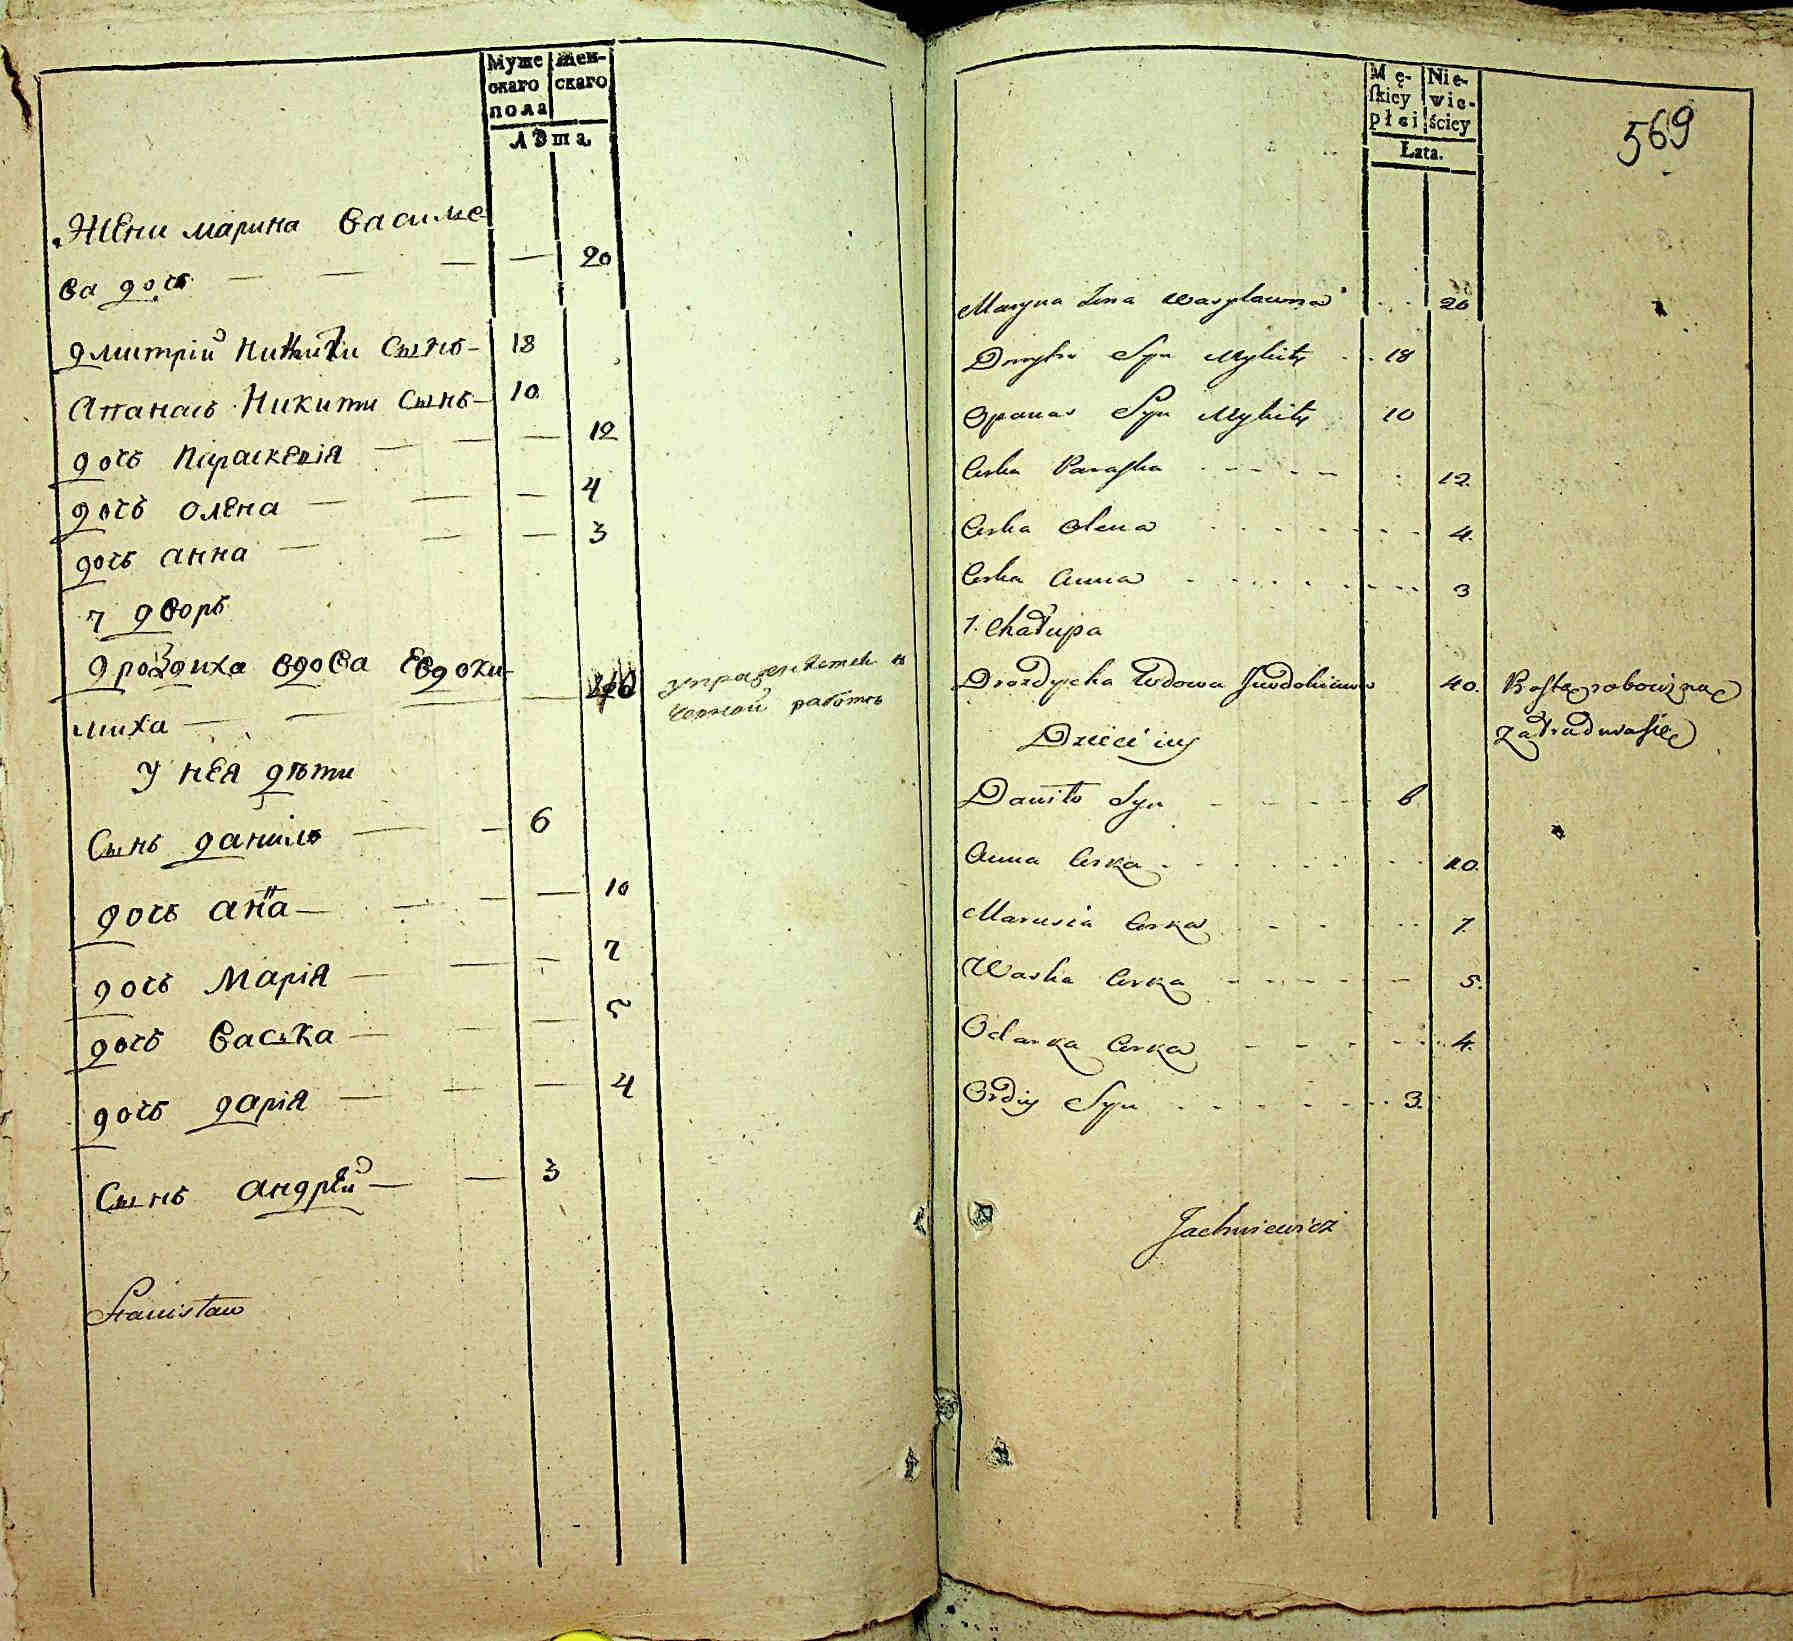 Муже
скаго
пола
Жен-
скаго
Лѣта.
Жени марина василе
ва дочь — — — — 20
дмитрій никити Сынъ - 18
Апанасъ Никити Сынъ - 10
дочь параскевія — — — — 12
дочь олена — — — 4
дочь анна — — — 3
7 дворъ
дроздиха вдова Евдоки
миха — — — — 40
упражняетсѧ в
черной работѣ
У нея дѣти
Сынъ данило — — 6
дочь анна — — — — 10
дочь Марія — — — 7
дочь васька — — — 5
дочь дарія — — — 4
Сынъ андрѣй — — 3
Stanisław
569
Mę-
skiey
płci
Nie-
wie-
ściey
Łata.
Maryna Żona Wasylowna 20
Dmytro Syn Mykity 18
Opanas Syn Mykity 10
Corka Paraska 12.
Corka Olena 4.
Corka Anna 3
7. Chałupa
Drozdycha Wdowa 40.
zatrudnia się
Dzieci iey
Daniło Syn 6
Anna Corka 10.
Marusia Corka 7.
Waska Corka 5.
Odarka Corka 4.
Syn 3.
Jachniewicz